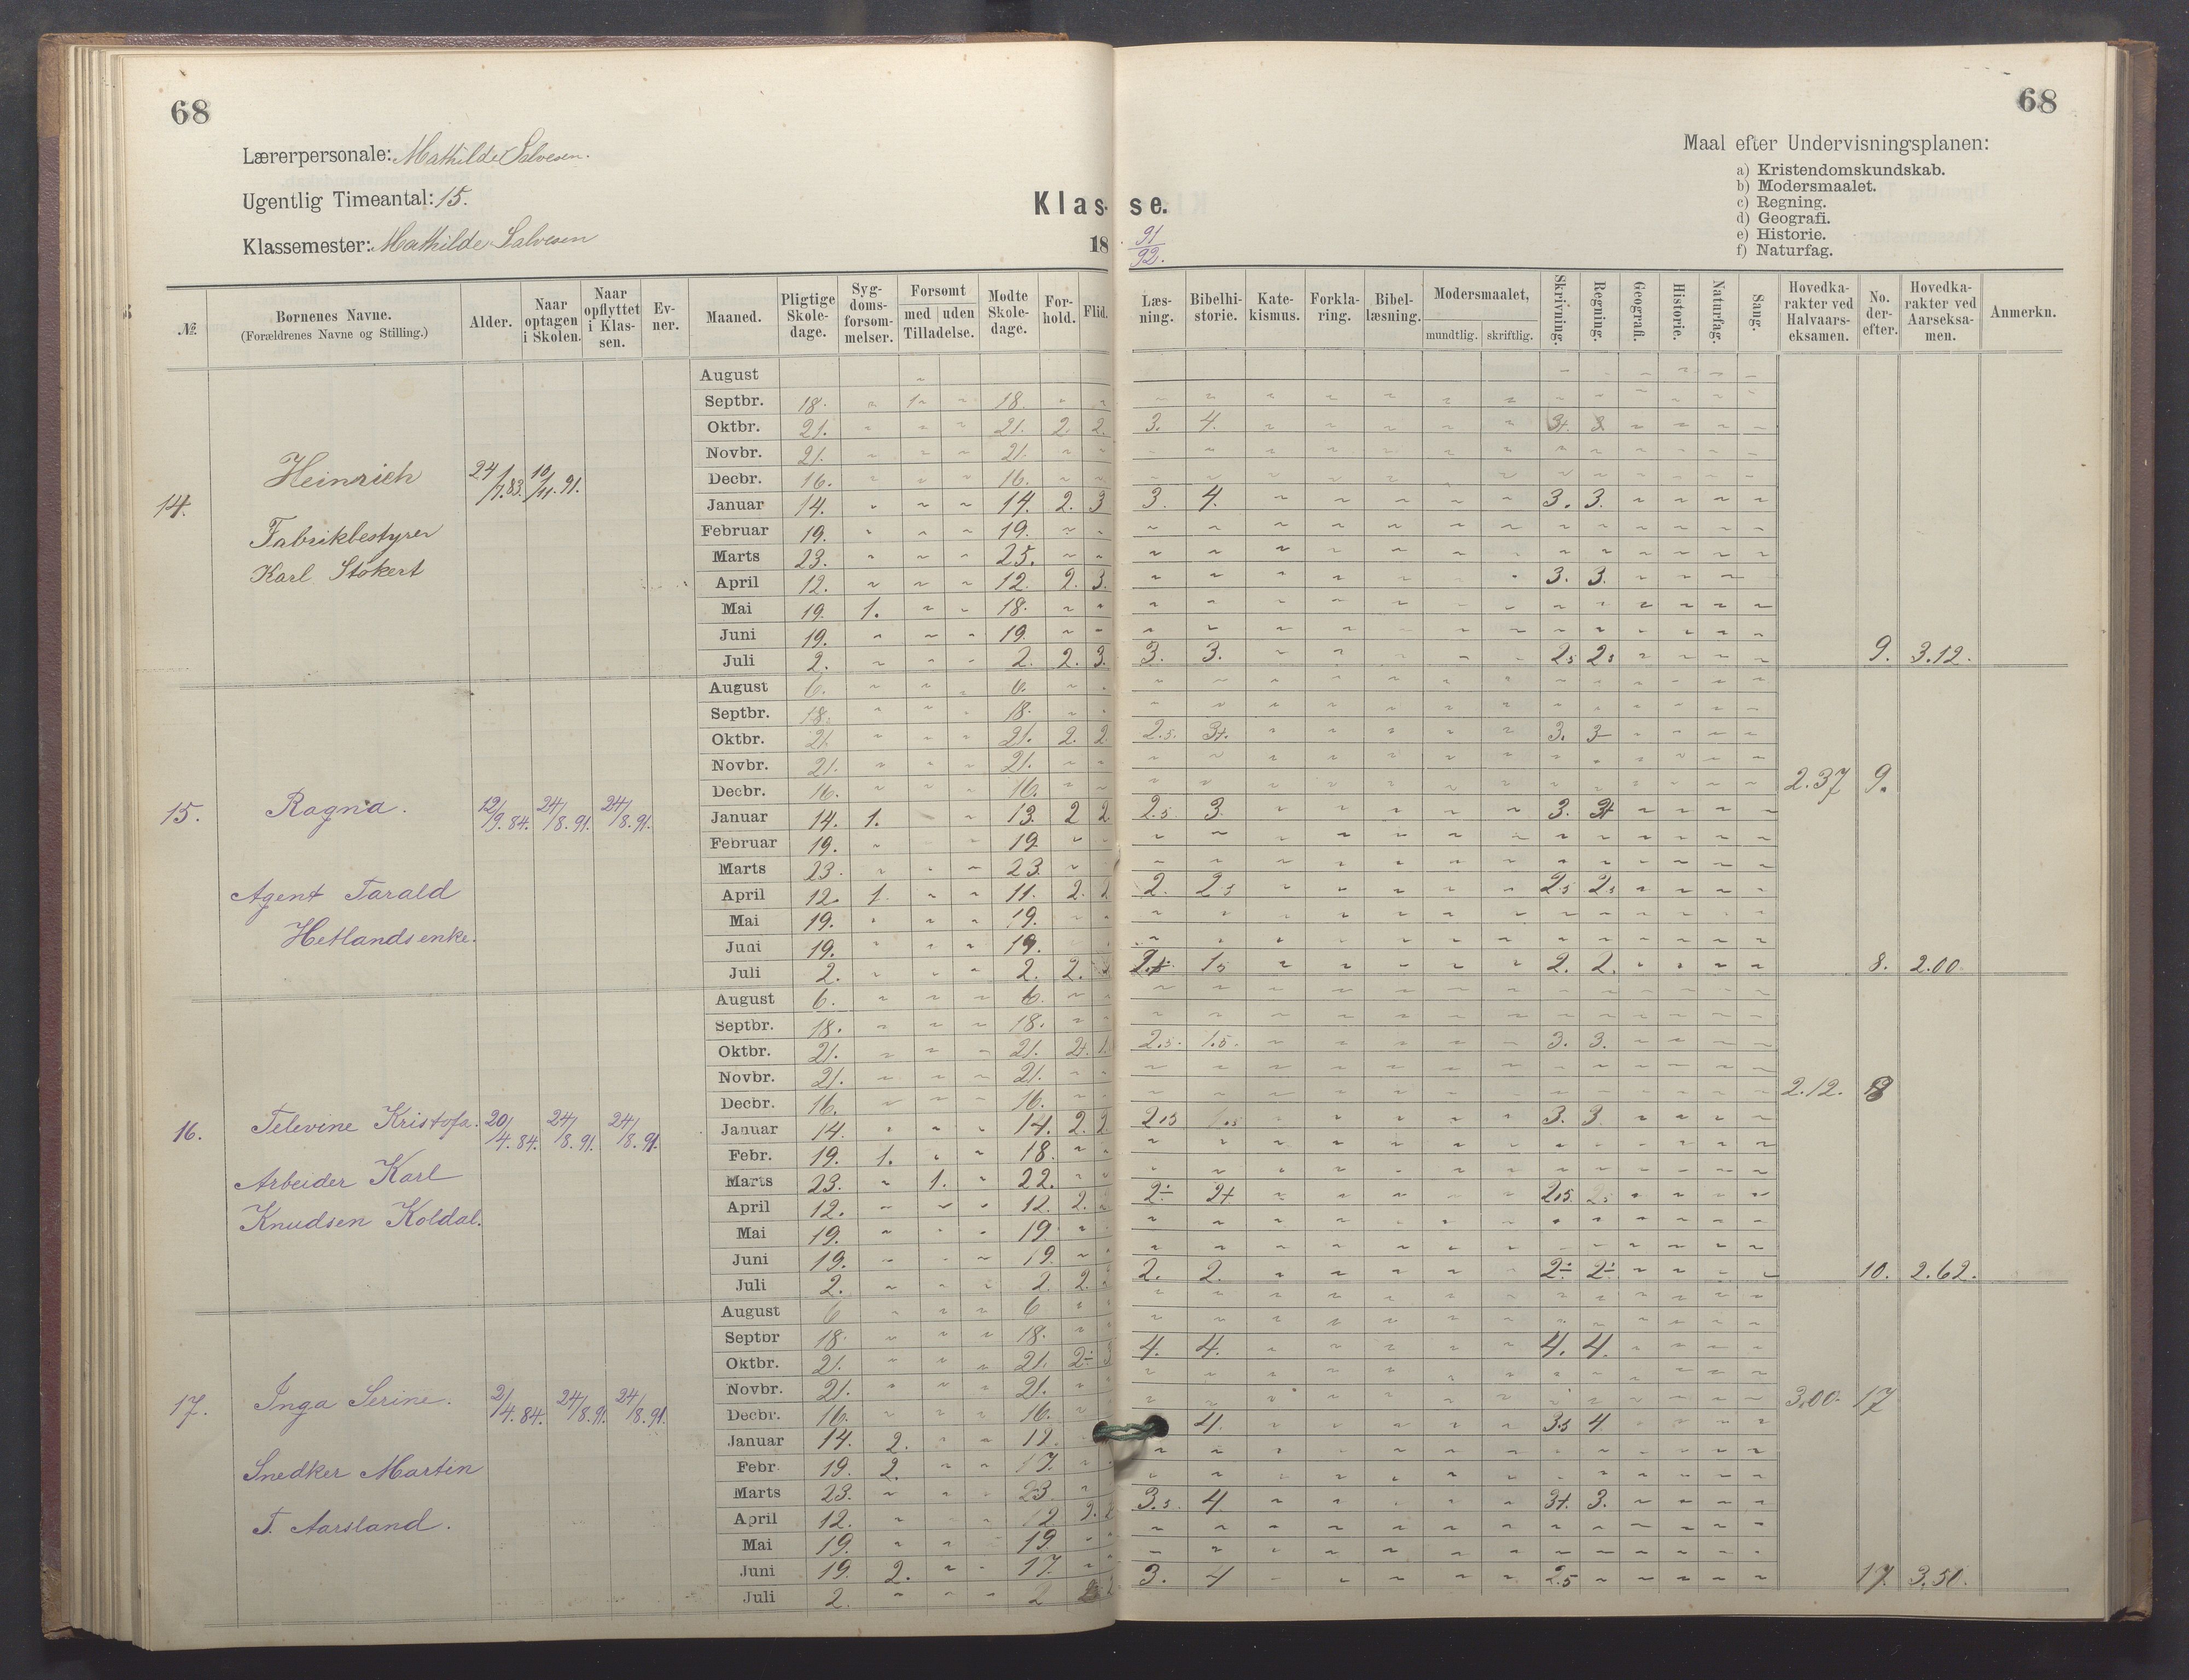 68
68
Lærerpersonale: Mathilde Salvesen.
Ugentlig Timeantal: 15.
Klassemester: Mathilde Salvesen
Klasse.
18 91/92.
Maal efter Undervisningsplanen:
a) Kristendomskundskab.
b) Modersmaalet.
c) Regning.
d) Geografi.
e) Historie.
f) Naturfag.
№. Børnenes Navne. (Forældrenes Navne og Stilling.) Alder. Naar optagen i Skolen. Naar opflyttet i Klassen. Evner. Maaned. Pligtige Skoledage. Sygdomsforsømmelser. Forsømt med uden Tilladelse. Mødte Skoledage. Forhold. Flid. Læsning. Bibelhistorie. Katekismus. Forklaring. Bibellæsning. Modersmaalet, mundtlig. skriftlig. Skrivning. Regning. Geografi. Historie. Naturfag. Sang. Hovedkarakter ved Halvaarseksamen. No. derefter. Hovedkarakter ved Aarseksamen. Anmerkn.
14. Heinrich 24/7.83. 10/11.91.
Fabrikbestyrer
Karl Stokert
August
Septbr. 18. 1 18.
Oktbr. 21. 21. 2. 2. 3. 4.
Novbr. 21. 21.
Decbr. 16. 16.
Januar 14. 14. 2. 3 3. 4. 3. 3.
Februar 19. 19.
Marts 23. 25.
April 12. 12. 2. 3. 3. 3.
Mai 19. 1. 18.
Juni 19. 19.
Juli 2. 2. 2. 3. 3. 3. 2.5 2.5 9. 3.12.
15. Ragna. 12/9.84. 24/8.91. 24/8.91.
Agent Tarald
Hetlands enke.
August 6. 6.
Septbr. 18. 18.
Oktbr. 21. 21. 2. 2 2.5. 3+. 3. 3
Novbr. 21. 21.
Decbr. 16. 16. 2.37 9.
Januar 14. 1. 13. 2 2 2.5 3. 3. 3+
Februar 19. 19.
Marts 23. 23.
April 12. 1. 11. 2. 2. 2.5 2.5 2.5
Mai 19. 19.
Juni 19. 19.
Juli 2. 2. 2. 1.5 2. 2. 8. 2.00
16. Televine Kristofa. 20/4.84. 24/8.91. 24/8.91.
Arbeider Karl
Knudsen Koldal.
August 6. 6.
Septbr. 18. 18.
Oktbr. 21. 21. 2+. 1. 2.5. 1.5. 3. 3.
Novbr. 21. 21.
Decbr. 16. 16. 2.12. 8
Januar 14. 14. 2. 2. 2.5 1.5 3. 3.
Febr. 19. 1. 18.
Marts 23. 1. 22.
April 12. 12. 2. 2÷ 2+ 2.5 2.5
Mai 19. 19.
Juni 19. 19.
Juli 2. 2. 2. 2. 2. 2÷ 2÷ 10. 2.62.
17. Inga Serine. 2/4.84. 24/8.91. 24/8.91.
Snedker Martin
T. Aarsland.
August 6 6
Septbr 18. 18.
Oktbr. 21. 21. 2÷ 3 4. 4. 4. 4.
Novbr. 21. 21.
Decbr. 16. 16. 3.00. 17
Januar 14. 2. 12. 4. 3.5 4.
Febr. 19. 2. 17.
Marts 23. 23.
April 12. 12 2. 3.5. 4 3+. 3.
Mai 19. 19.
Juni 19. 2. 17.
Juli 2. 2 3. 4 2.5 17. 3.50.